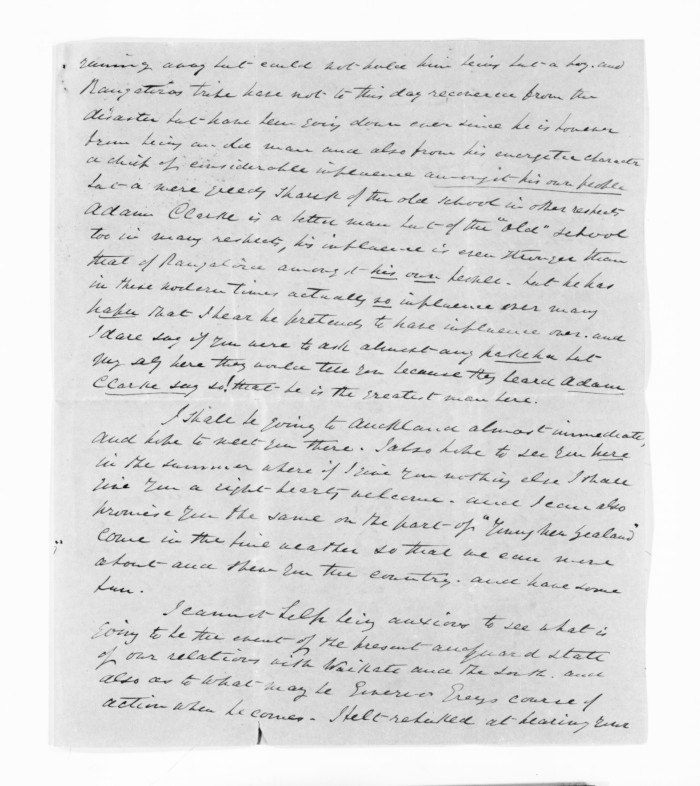 running away but could not hold him being but a boy. and
Rangatiras tribe have not to this day recovered from the
disaster but have been going down ever since he is however
from being an old man and also from his energetic character
a chief of considerable influence amongst his own people
but a mere greedy shark of the old school in other respects
Adam Clarke is a better man but of the "old" school
too in many respects, his influence is even stronger than
that of Rangatira amongst his own people. but he has
in these modern times actually no influence over many
hapu that I hear he pretends to have influence over. and
I dare say if you were to ask almost any pakeha but
my self here they would tell you because they heard Adam
Clarke say so! that he is the greatest man here.
I shall be going to Auckland almost immediate,
and hope to meet you there. I also hope to see you here
in the summer where if I give you nothing else I shall
give you a right hearty welcome. and I can also
promise you the same on the part of "Young New Zealand"
come in the fine weather so that we can move
about and shew you the country. and have some
fun.
I cannot help being anxious to see what is
going to be the event of the present state
of our relations with Waikato and the South. and
also as to what may be Governor Greys course of
action when he comes. I felt rebuked at hearing your